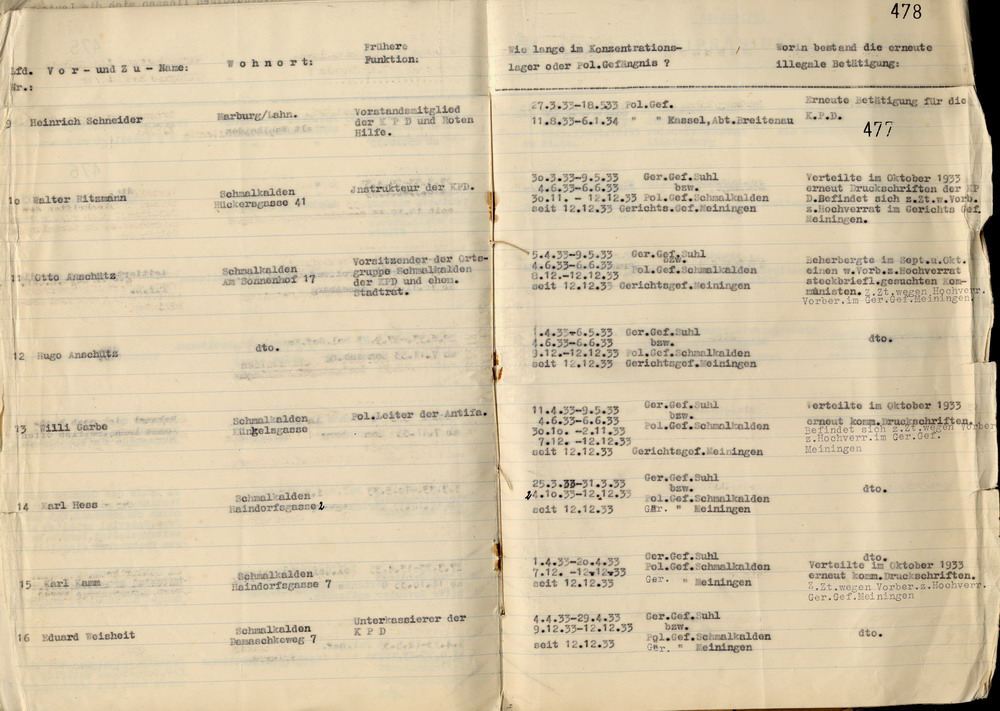 478
Lfd. Nr.: V o r - und Z u - Name: W o h n o r t : Frühere Funktion: Wie lange im Konzentrations- Worin bestand die erneute
lager oder Pol.Gefängnis ? illegale Betätigung:
9 Heinrich Schneider Marburg/Lahn. Vorstandsmitglied
der K P D und Roten
Hilfe.
27.3.33-18.533 Pol.Gef.
11.8.33-6.1.34 " " Kassel,Abt.Breitenau
Erneute Betätigung für die
K.P.D.
477
1o Walter Ritzmann Schmalkalden
Hückersgasse 41
Jnstrukteur der KPD.
3o.3.33-9.5.33 Ger.Gef.Suhl
4.6.33-6.6.33 bzw.
3o.11. - 12.12.33 Pol.Gef.Schmalkalden
seit 12.12.33 Gerichts.Gef.Meiningen
Verteilte im Oktober 1933
erneut Druckschriften der KP
D.Befindet sich z.Zt.w.Vorb.
z.Hochverrat im Gerichts Gef.
Meiningen.
11 Otto Anschütz Schmalkalden
Am Sonnenhof 17
Vorsitzender der Orts-
gruppe Schmalkalden
der KPD und ehem.
Stadtrat.
5.4.33-9.5.33 Ger.Gef.Suhl
bzw.
4.6.33-6.6.33 Pol.Gef.Schmalkalden
8.12.-12.12.33
seit 12.12.33 Gerichtsgef.Meiningen
Beherbergte im Sept.u.Okt.
einen w.Vorb.z.Hochverrat
steckbriefl.gesuchten Kom-
munisten. Z.Zt.wegen Hochverr.
Vorber.im Ger.Gef.Meiningen
12 Hugo Anschütz dto.
1.4.33-6.5.33 Ger.Gef.Suhl
4.6.33-6.6.33 bzw.
9.12.-12.12.33 Pol.Gef.Schmalkalden
seit 12.12.33 Gerichtsgef.Meiningen
dto.
13 Willi Garbe Schmalkalden
Künkelsgasse
Pol.Leiter der Antifa.
11.4.33-9.5.33 Ger.Gef.Suhl
bzw.
4.6.33-6.6.33 Pol.Gef.Schmalkalden
3o.1o. -2.11.33
7.12. -12.12.33
seit 12.12.33 Gerichtsgef.Meiningen
Verteilte im Oktober 1933
erneut komm.Druckschriften.
Befindet sich z.Zt.wegen Vorber
z.Hochverr.im Ger.Gef.
Meiningen
14 Karl Hess Schmalkalden
Haindorfsgasse 2
25.3.33-31.3.33 Ger.Gef.Suhl
bzw.
24.1o.33-12.12.33 Pol.Gef.Schmalkalden
seit 12.12.33 Ger. " Meiningen
dto.
15 Karl Kamm Schmalkalden
Haindorfsgasse 7
1.4.33-2o.4.33 Ger.Gef.Suhl
7.12. -12.12.33 Pol.Gef.Schmalkalden
seit 12.12.33 Ger. " Meiningen
dto.
Verteilte im Oktober 1933
erneut komm.Druckschriften.
Z.Zt.wegen Vorber.z.Hochverr.
Ger.Gef.Meiningen
16 Eduard Weisheit Schmalkalden
Damaschkeweg 7
Unterkassierer der
K P D
4.4.33-29.4.33 Ger.Gef.Suhl
9.12.33-12.12.33 bzw.
Pol.Gef.Schmalkalden
seit 12.12.33 Ger. " Meiningen
dto.